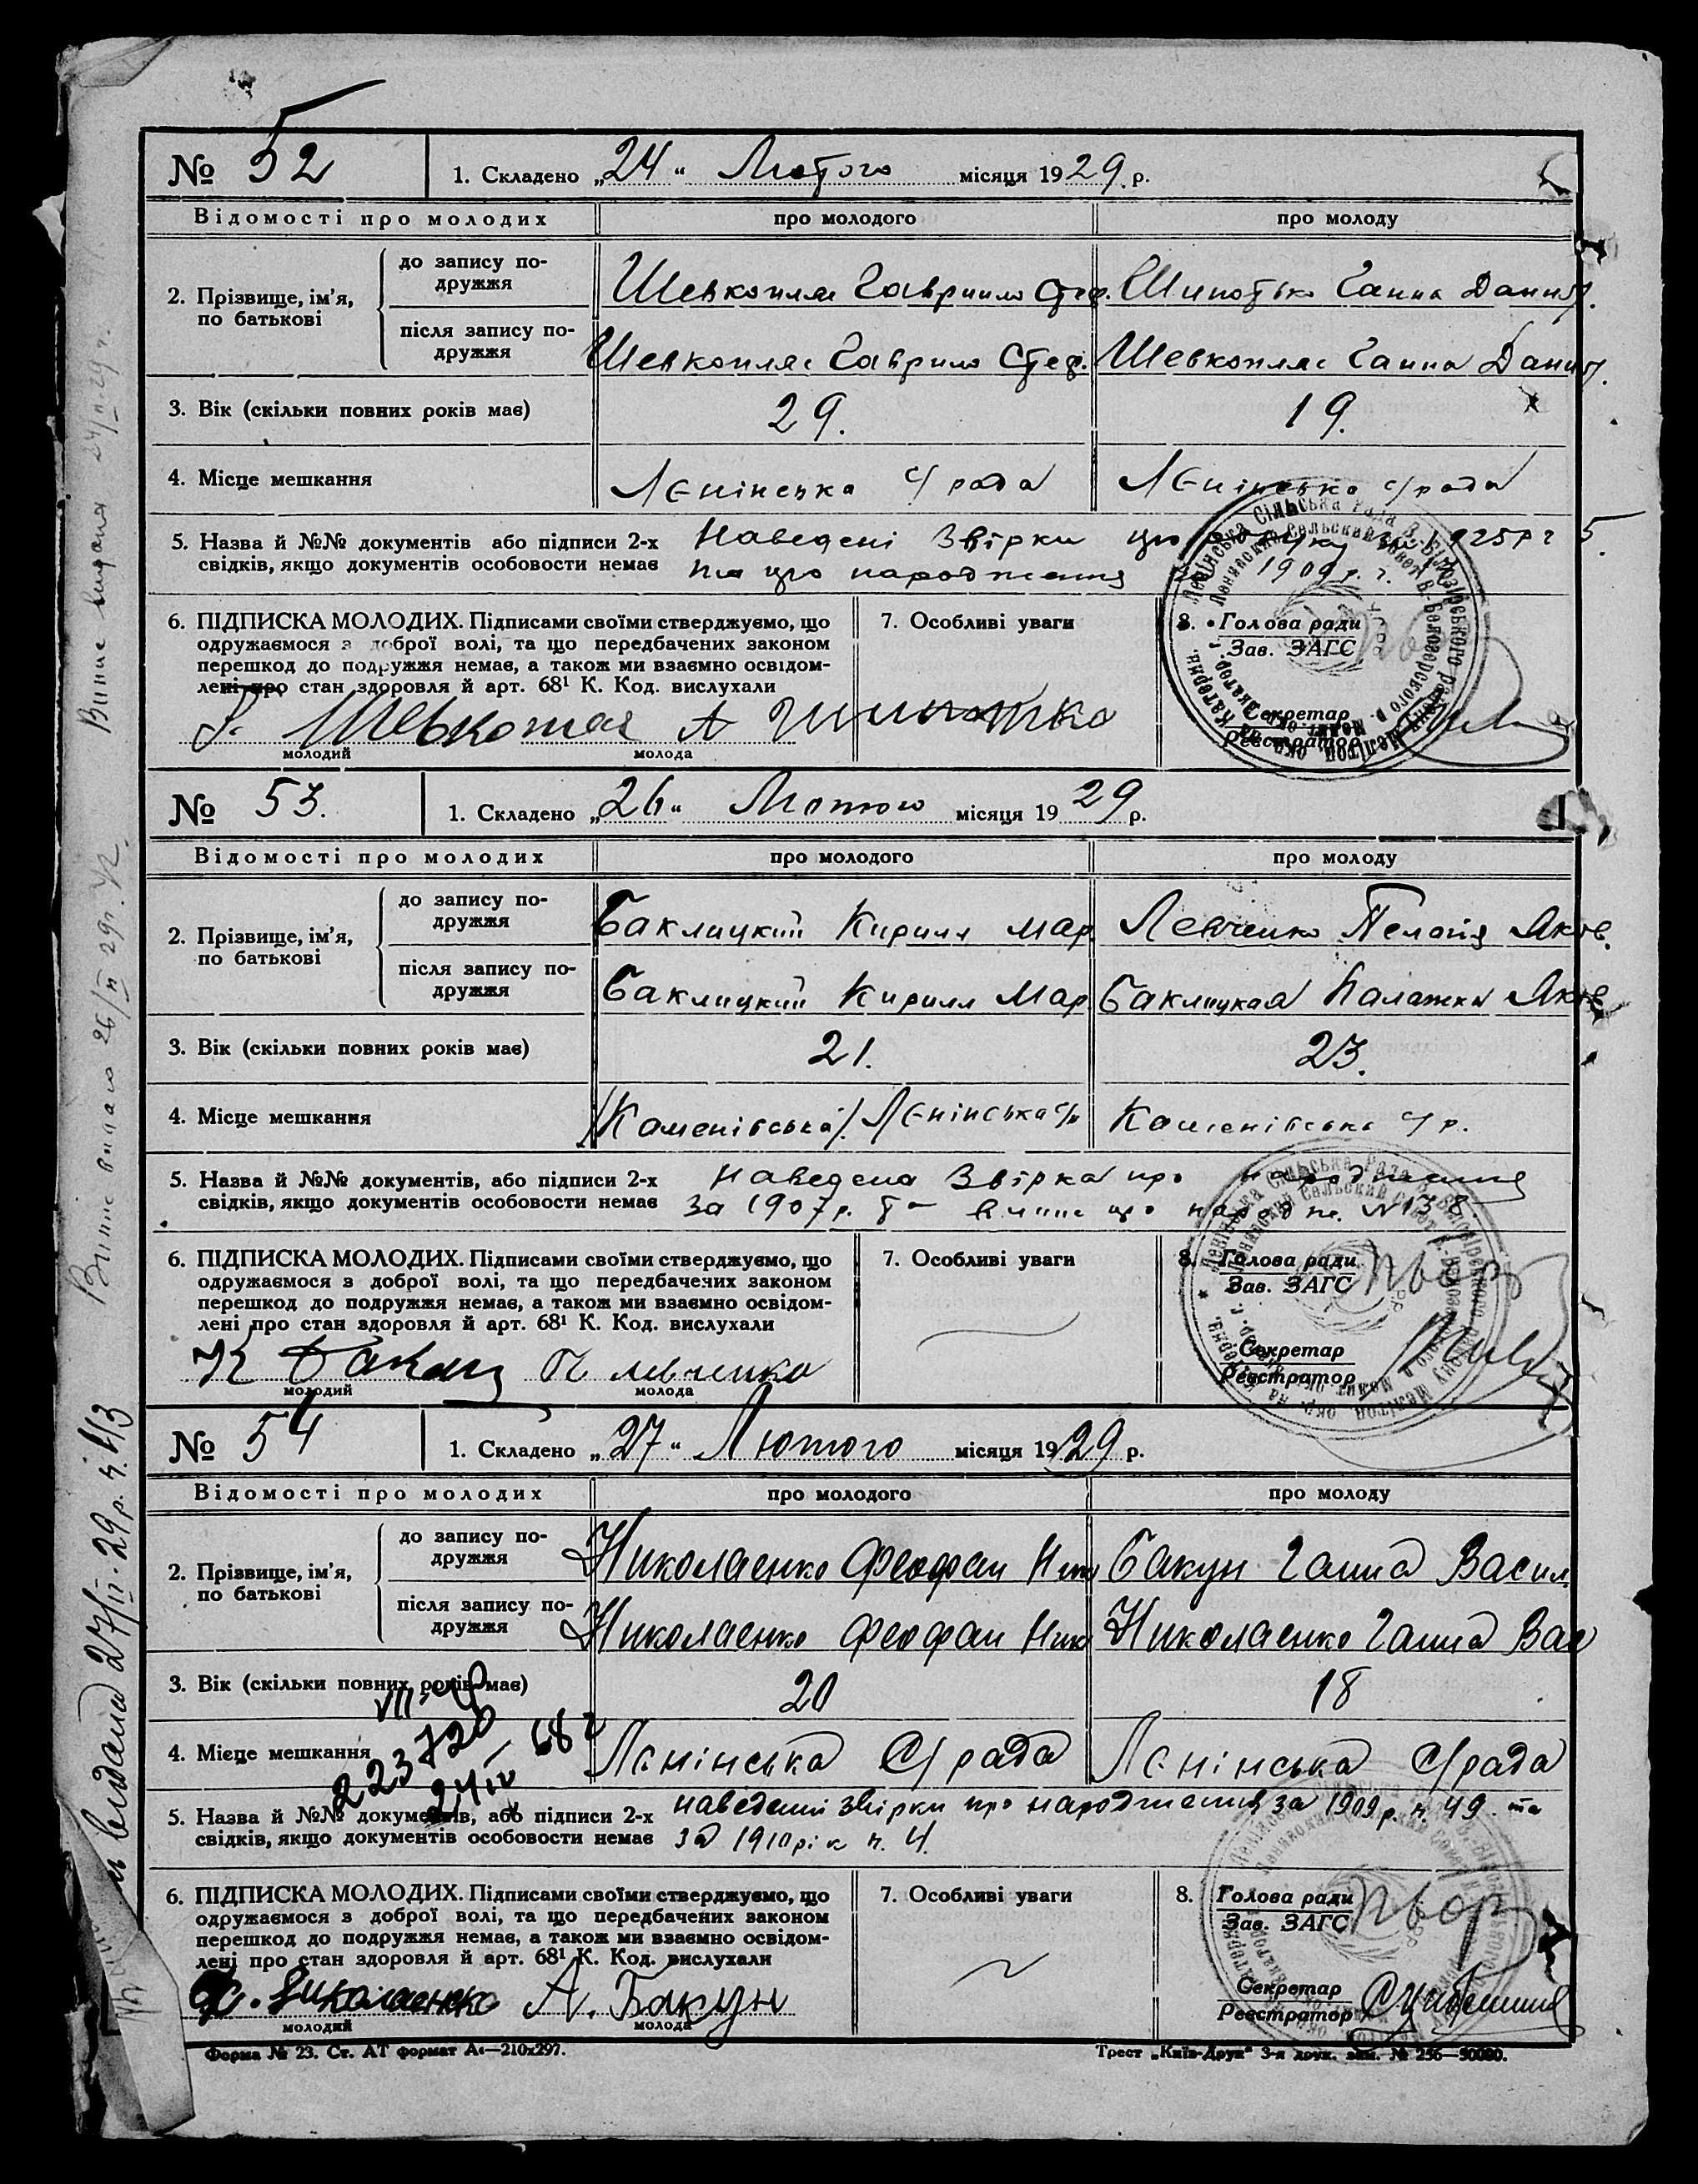 № 52 1. Складено „24“ Лютого місяця 1929 р.
Відомості про молодих про молодого про молоду
2. Прізвище, ім'я, по батькові
до запису подружжя Шевкопляс Гавриило Стеф. Шипотько Ганна Данил.
після запису подружжя Шевкопляс Гаврило Стеф. Шевкопляс Ганна Данил.
3. Вік (скільки повних років має) 29. 19.
4. Місце мешкання Лєнінська с/рада Лєнінська с/рада
5. Назва й №№ документів або підписи 2-х Наведені Звірки про
свідків, якщо документів особовости немає та про народження 1909 р.
6. ПІДПИСКА МОЛОДИХ. Підписами своїми стверджуємо, що 7. Особливі уваги 8. Голова ради
одружаємося з доброї волі, та що передбачених законом Зав. ЗАГС
перешкод до подружжя немає, а також ми взаємно освідом-
лені про стан здоровля й арт. 68¹ К. Код. вислухали
Г. Шевкопляс А Шипотко Секретар
молодий молода Реєстратор
№ 53. 1. Складено „26“ Лютого місяця 1929 р.
Відомості про молодих про молодого про молоду
2. Прізвище, ім'я, по батькові
до запису подружжя Баклицкий Кирилл Мар. Левченко Пелагія Яков.
після запису подружжя Баклицкий Кирилл Мар. Баклицкая Палажка Яков
3. Вік (скільки повних років має) 21. 23.
4. Місце мешкання /Каменівська/. Лєнінська с/р Каменівська с/р.
5. Назва й №№ документів, або підписи 2-х Наведена Звірка про народження
свідків, якщо документів особовости немає за 1907 р. та випис про народж. №138.
6. ПІДПИСКА МОЛОДИХ. Підписами своїми стверджуємо, що 7. Особливі уваги 8. Голова ради
одружаємося з доброї волі, та що передбачених законом Зав. ЗАГС
перешкод до подружжя немає, а також ми взаємно освідом-
лені про стан здоровля й арт. 68¹ К. Код. вислухали
К Баклиц П Левченко Секретар
молодий молода Реєстратор
№ 54 1. Складено „27“ Лютого місяця 1929 р.
Відомості про молодих про молодого про молоду
2. Прізвище, ім'я, по батькові
до запису подружжя Николаенко Феофан Ник Бакун Ганна Васил.
після запису подружжя Николаенко Феофан Ник Николаенко Ганна Вас
3. Вік (скільки повних років має) 20 18
4. Місце мешкання Лєнінська С/рада Лєнінська С/рада
5. Назва й №№ документів, або підписи 2-х наведені звірки про народження за 1909 р. н. 49 та
свідків, якщо документів особовости немає за 1910 рік н. 4.
6. ПІДПИСКА МОЛОДИХ. Підписами своїми стверджуємо, що 7. Особливі уваги 8. Голова ради
одружаємося з доброї волі, та що передбачених законом Зав. ЗАГС
перешкод до подружжя немає, а також ми взаємно освідом-
лені про стан здоровля й арт. 68¹ К. Код. вислухали
Ф. Николаенко А. Бакун Секретар
молодий молода Реєстратор
Форма № 23. Ст. АТ формат А4—210х297. Трест „Київ-Друк“ 3-я друк. зам. № 256—50000.
Випис видана 24/II-29 г.
Випис видано 26/II 29 г.
видана 27/II-29 р. н. 413
223720
24 IV 68 г